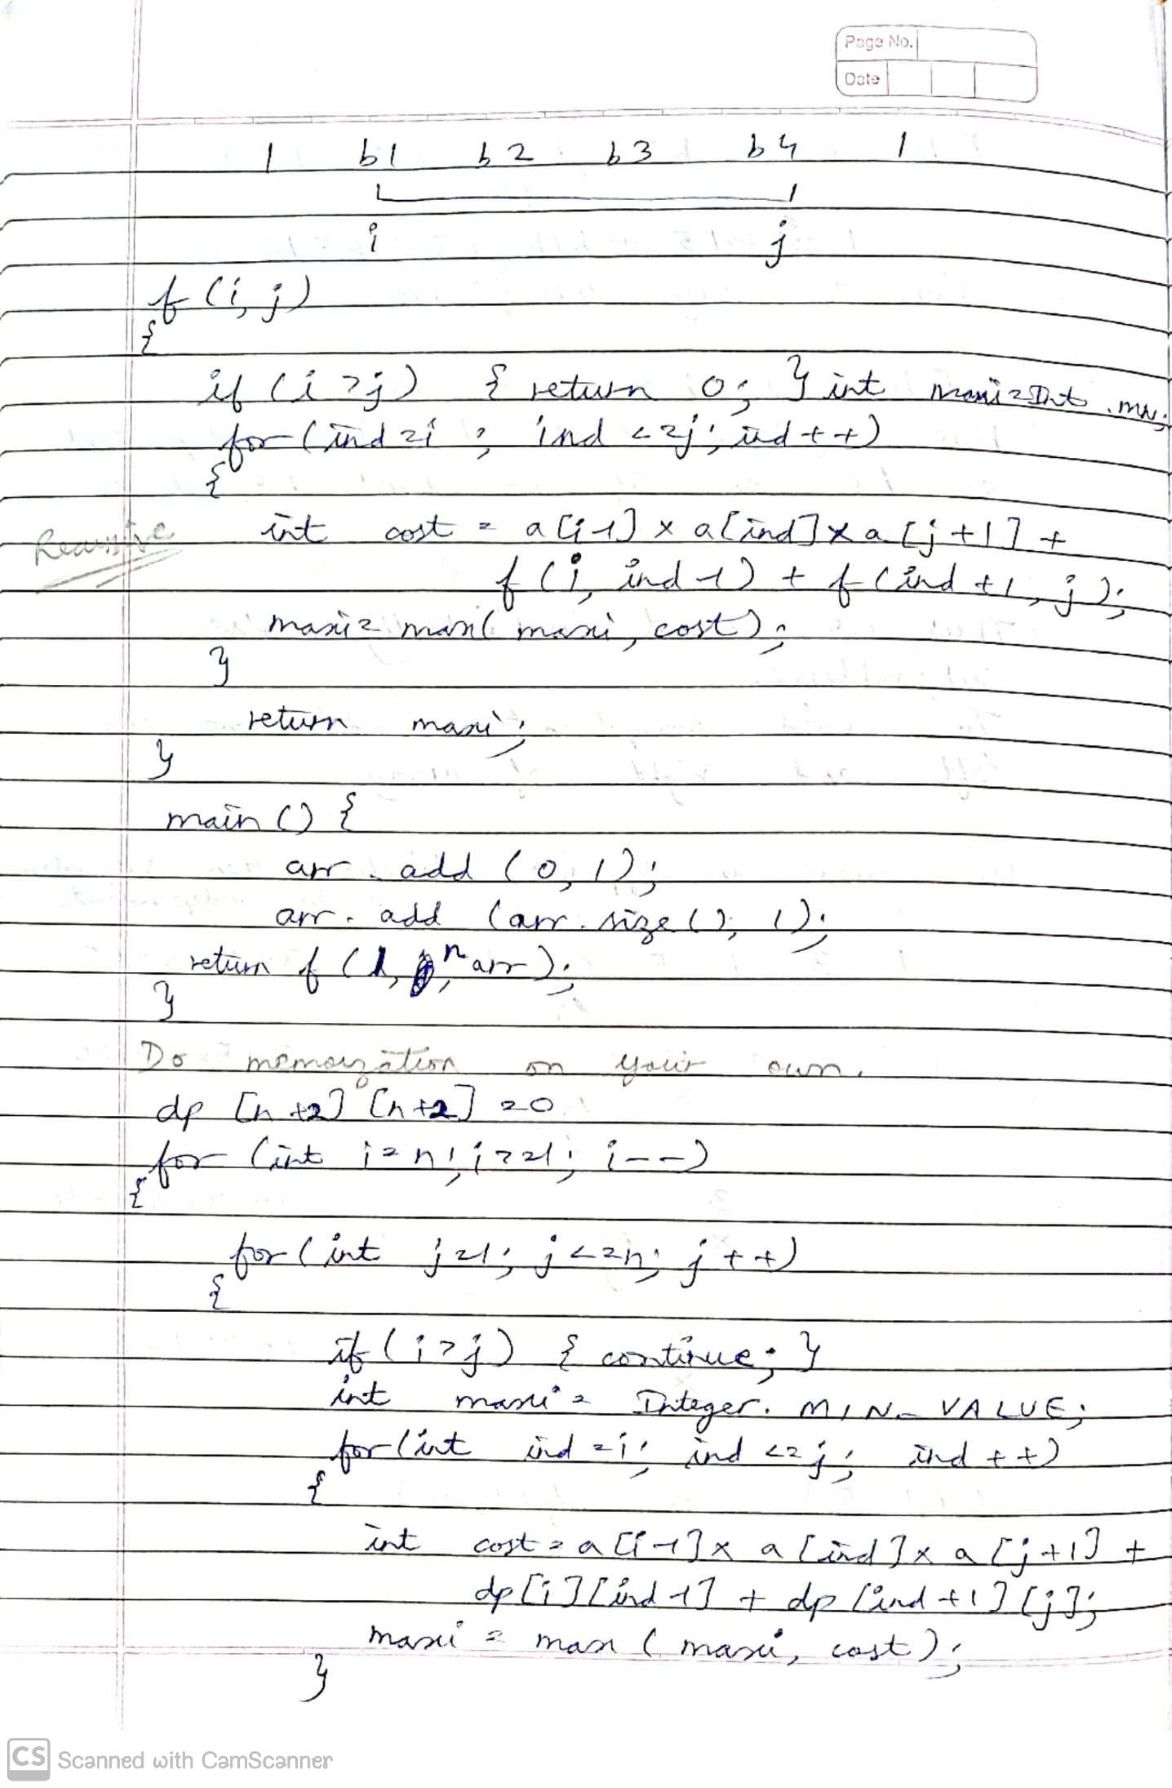 Page No.
Date
1 b1 b2 b3 b4 1
i j
f (i, j)
{
if (i > j) { return 0; } int maxi = Int.min;
for (ind = i ; ind <= j ; ind ++)
{
Recursive
int cost = a[i-1] x a[ind] x a[j+1] +
f (i, ind -1) + f (ind +1, j);
maxi = max( maxi, cost);
}
return maxi;
}
main () {
arr . add (0, 1);
arr . add (arr . size (), 1);
return f (1, n, arr);
}
Do memoization on your own.
dp [n +2] [n +2] = 0
for (int i = n; i >= 1; i --)
{
for (int j = 1; j <= n; j ++)
{
if (i > j) { continue; }
int maxi = Integer. MIN_VALUE;
for (int ind = i; ind <= j; ind ++)
{
int cost = a[i-1] x a[ind] x a[j+1] +
dp[i][ind -1] + dp [ind +1] [j];
maxi = max ( maxi, cost);
}
CS Scanned with CamScanner